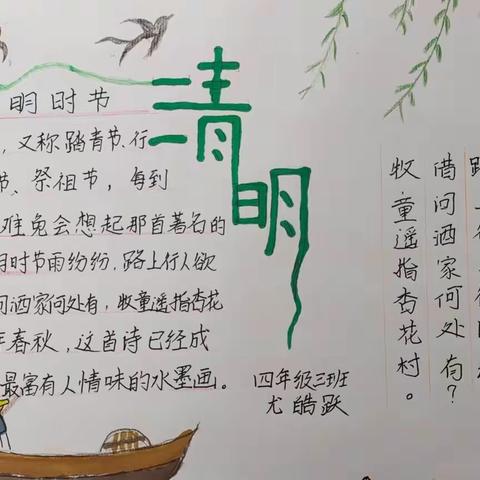 清明
明时节
，又称踏青节、行
节、祭祖节，每到
难免会想起那首著名的
明时节雨纷纷，路上行人欲
问酒家何处有，牧童遥指杏花
年春秋，这首诗已经成
最富有人情味的水墨画。
四年级三班
尤皓跃
借问酒家何处有？
牧童遥指杏花村。